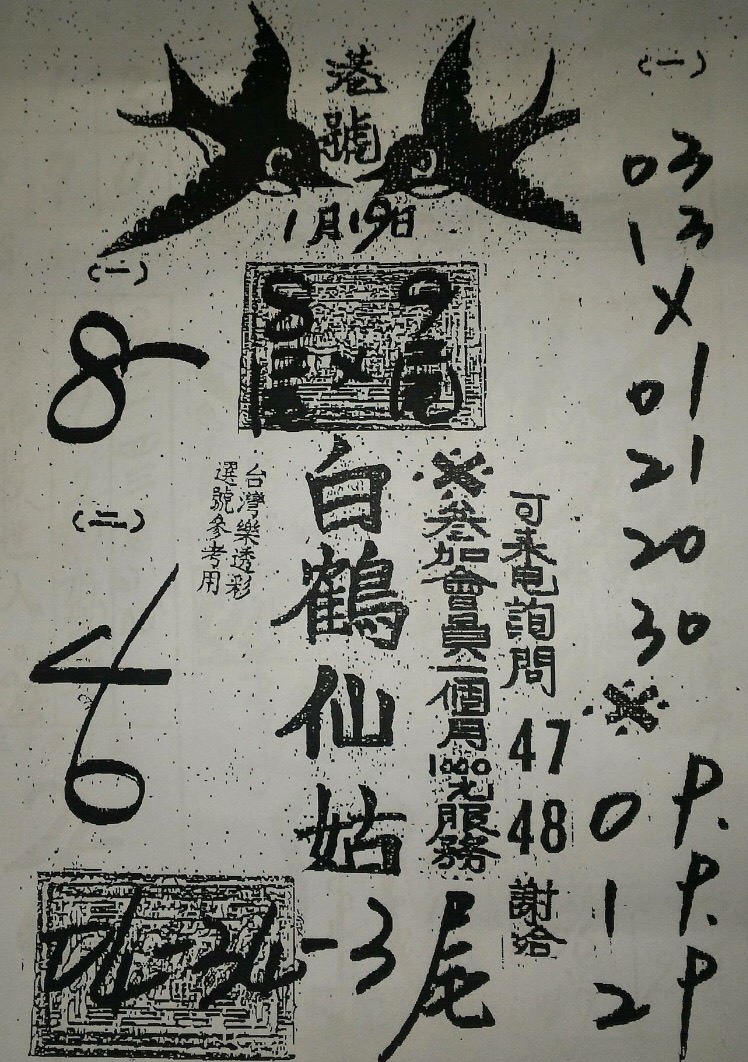 港號
1月19日
(一)
8
(二)
6
8 9
尾
(一)
03
13
X
01
21
20
30
※
0 P.
1 P.
2 P
可來電詢問 47 48 謝哈
※參加會員一個月1000元服務
白鶴仙姑
台灣樂透彩
選號參考用
3尾